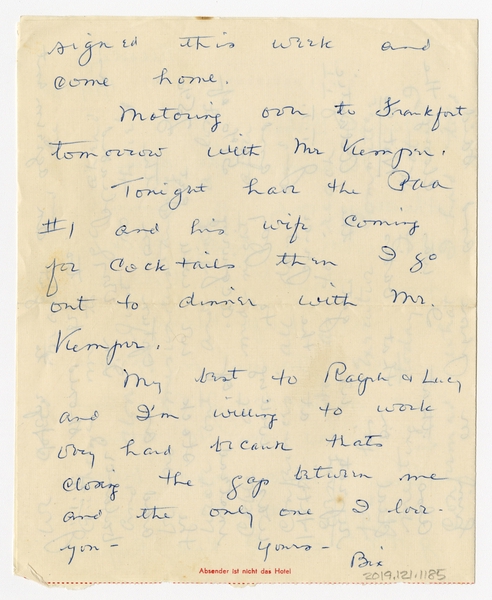 signed this week and
come home.
Motoring over to Frankfort
tomorrow with Mr Kemper.
Tonight have the Paa
#1 and his wife coming
for cocktails then I go
out to dinner with Mr.
Kemper.
My best to Ralph & Lucy
and I'm willing to work
very hard because thats
closing the gap between me
and the only one I love -
you - Yours - Bix
Absender ist nicht das Hotel
2019.121.1185